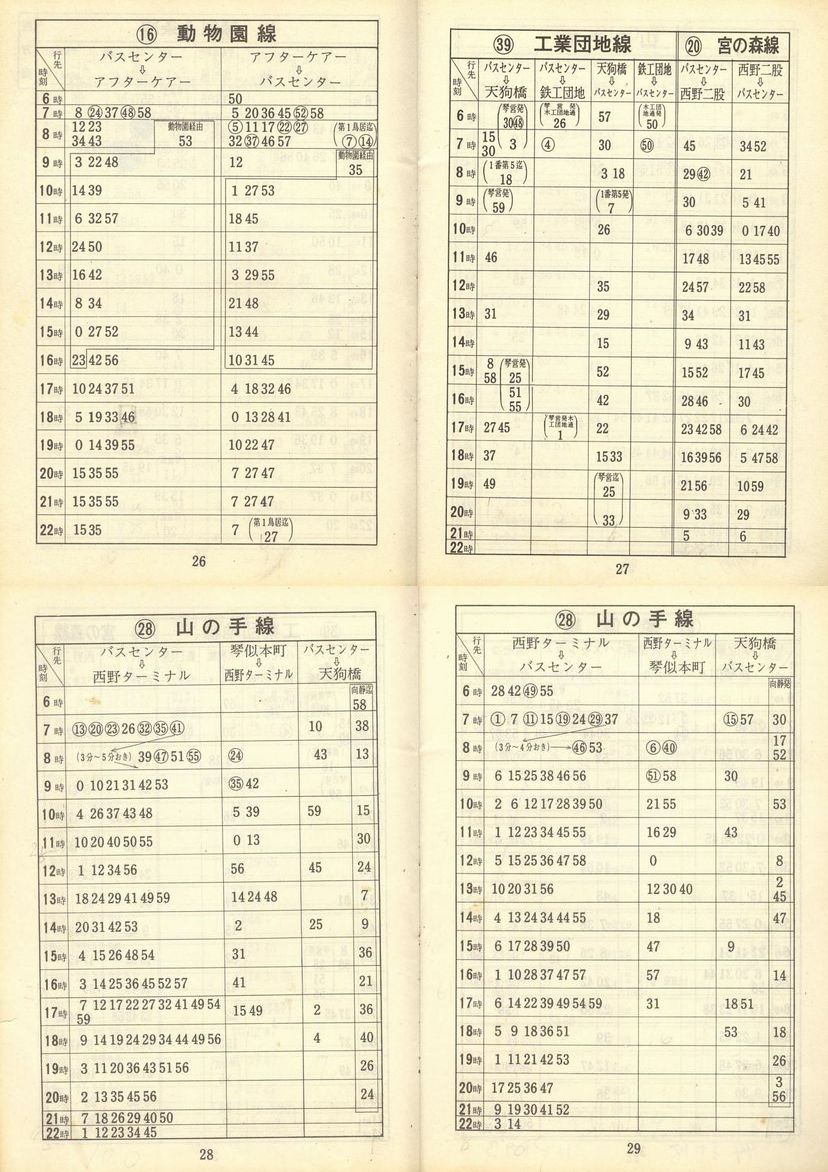 ⑯ 動物園線
行先 時刻 バスセンター ⇩ アフターケアー アフターケアー ⇩ バスセンター
6時 50
7時 8 ㉔ 37 ㊽ 58 5 20 36 45 52 58
8時 12 23 34 43 動物園経由 53 ⑤ 11 17 ㉒ ㉗ 32 ㊲ 46 57 (第1鳥居迄 ⑦ ⑭)
9時 3 22 48 12 動物園経由 35
10時 14 39 1 27 53
11時 6 32 57 18 45
12時 24 50 11 37
13時 16 42 3 29 55
14時 8 34 21 48
15時 0 27 52 13 44
16時 23 42 56 10 31 45
17時 10 24 37 51 4 18 32 46
18時 5 19 33 46 0 13 28 41
19時 0 14 39 55 10 22 47
20時 15 35 55 7 27 47
21時 15 35 55 7 27 47
22時 15 35 7 (第1鳥居迄 27)
26
㊴ 工業団地線 ⑳ 宮の森線
行先 時刻 バスセンター ⇩ 天狗橋 バスセンター ⇩ 鉄工団地 天狗橋 ⇩ バスセンター 鉄工団地 ⇩ バスセンター バスセンター ⇩ 西野二股 西野二股 ⇩ バスセンター
6時 (琴営発 30 ㊽) (琴営発 木工団地通 26) 57 (木工団地通発 50)
7時 15 30 (3) ④ 30 ㊿ 45 34 52
8時 (1番第5迄 18) 3 18 29 ㊷ 21
9時 (琴営発 59) (1番第5発 7) 30 5 41
10時 26 6 30 39 0 17 40
11時 46 17 48 13 45 55
12時 35 24 57 22 58
13時 31 29 34 31
14時 15 9 43 11 43
15時 8 58 (琴営発 25 52 15 52 17 45
16時 51 55) 42 28 46 30
17時 27 45 (琴営発木工団地通 1) 22 23 42 58 6 24 42
18時 37 15 33 16 39 56 5 47 58
19時 49 (琴営迄 25 21 56 10 59
20時 33) 9 33 29
21時 5 6
22時
27
㉘ 山の手線
行先 時刻 バスセンター ⇩ 西野ターミナル 琴似本町 ⇩ 西野ターミナル バスセンター ⇩ 天狗橋
6時 向静迄 58
7時 ⑬ ⑳ ㉓ 26 ㉜ ㉟ ㊶ 10 38
8時 (3分~5分おき) 39 ㊼ 51 55 ㉔ 43 13
9時 0 10 21 31 42 53 ㉟ 42
10時 4 26 37 43 48 5 39 59 15
11時 10 20 40 50 55 0 13 30
12時 1 12 34 56 56 45 24
13時 18 24 29 41 49 59 14 24 48 7
14時 20 31 42 53 2 25 9
15時 4 15 26 48 54 31 36
16時 3 14 25 36 45 52 57 41 21
17時 7 12 17 22 27 32 41 49 54 59 15 49 2 36
18時 9 14 19 24 29 34 44 49 56 4 40
19時 3 11 20 36 43 51 56 26
20時 2 13 35 45 56 24
21時 7 18 26 29 40 50
22時 1 12 23 34 45
28
㉘ 山の手線
行先 時刻 西野ターミナル ⇩ バスセンター 西野ターミナル ⇩ 琴似本町 天狗橋 ⇩ バスセンター
6時 28 42 ㊾ 55 向静発
7時 ① 7 ⑪ 15 ⑲ 24 ㉙ 37 ⑮ 57 30
8時 (3分~4分おき) → ㊻ 53 ⑥ ㊵ 17 52
9時 6 15 25 38 46 56 51 58 30
10時 2 6 12 17 28 39 50 21 55 53
11時 1 12 23 34 45 55 16 29 43
12時 5 15 25 36 47 58 0 8
13時 10 20 31 56 12 30 40 2 45
14時 4 13 24 34 44 55 18 47
15時 6 17 28 39 50 47 9
16時 1 10 28 37 47 57 57 14
17時 6 14 22 39 49 54 59 31 18 51
18時 5 9 18 36 51 53 18
19時 1 11 21 42 53 26
20時 17 25 36 47 3 56
21時 9 19 30 41 52
22時 3 14
29